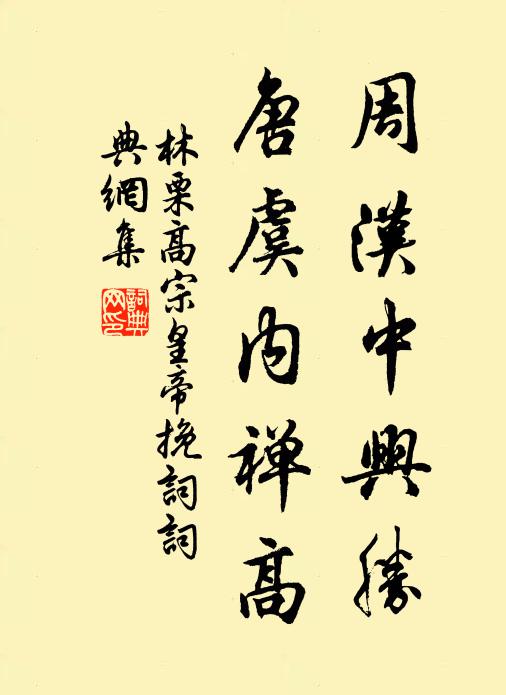 周漢中興勝
唐虞内禅高
林栗高宗皇帝挽詞詞
典網集
詞典網印